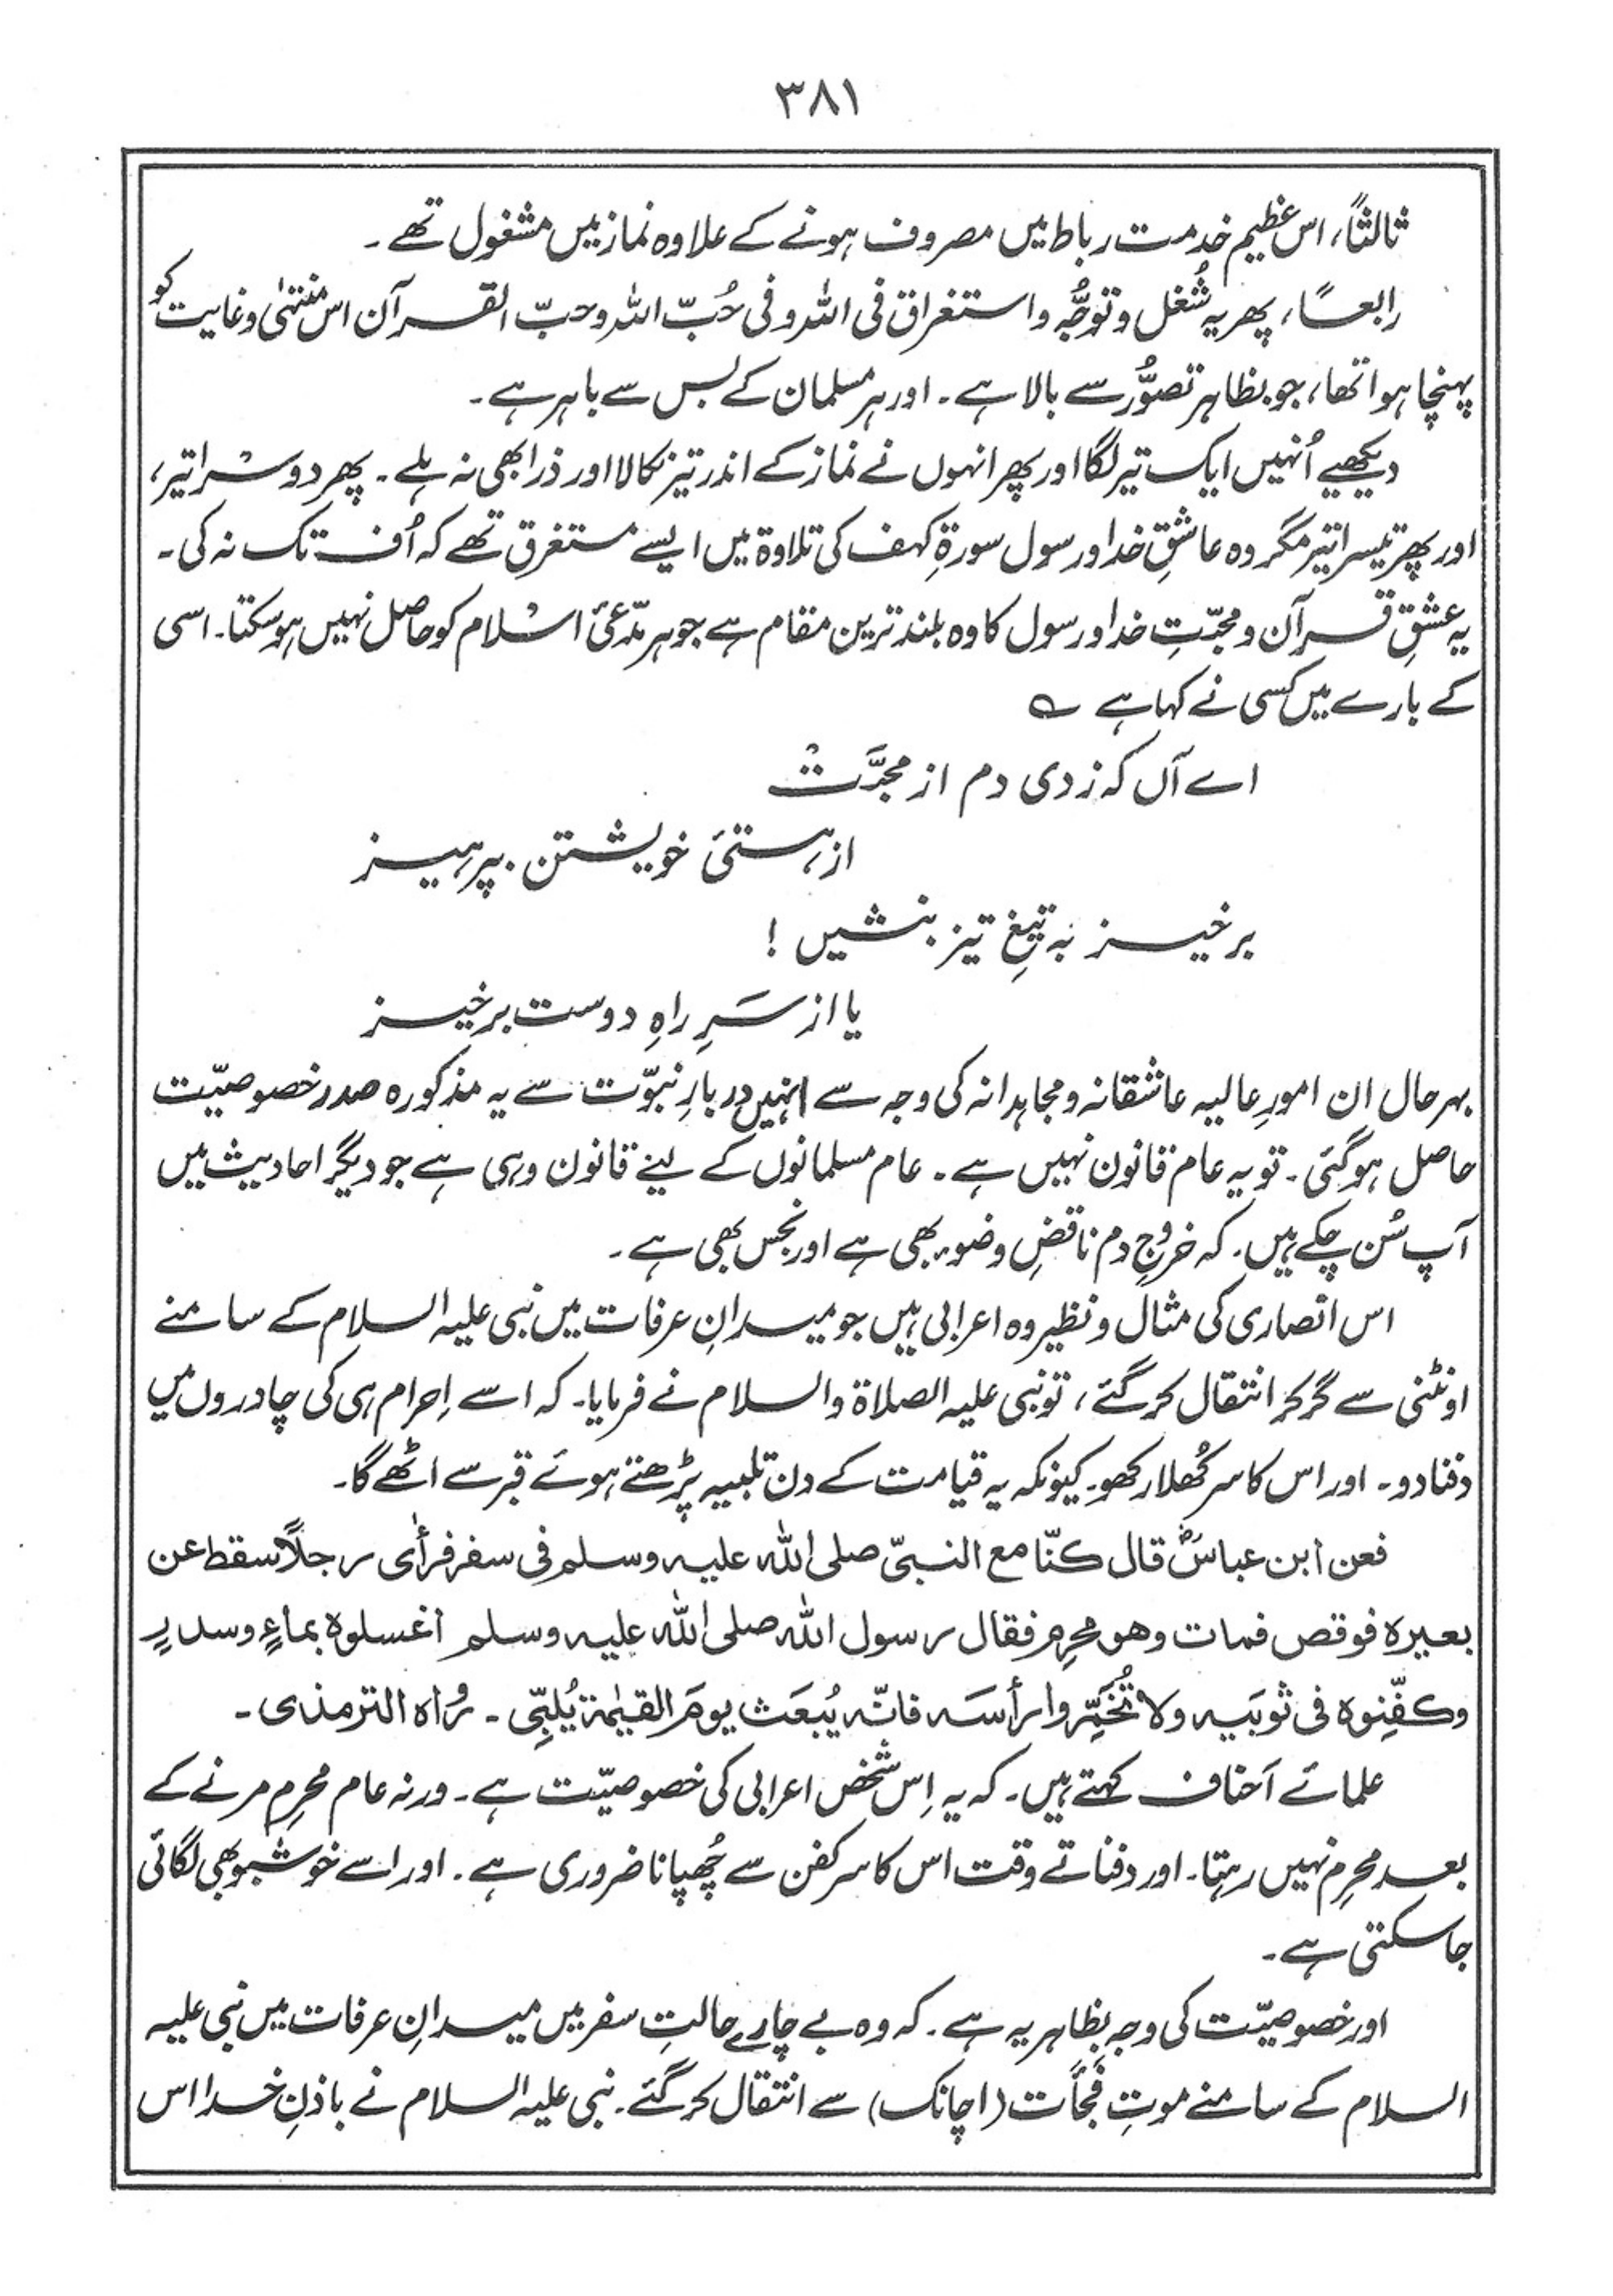 ۳۸۱
ثالثاً، اس عظیم خدمت رباط میں مصروف ہونے کے علاوہ نماز میں مشغول تھے۔
رابعاً، پھر یہ شُغل و توجُّہ و استغراق فی اللہ و فی حُبّ اللہ و حبّ القرآن اس منتہیٰ و غایت کو
پہنچا ہوا تھا، جو بظاہر تصوُّر سے بالا ہے۔ اور ہر مسلمان کے بس سے باہر ہے۔
دیکھیے اُنہیں ایک تیر لگا اور پھر انہوں نے نماز کے اندر تیز نکالا اور ذرا بھی نہ ہلے۔ پھر دوسرا تیر،
اور پھر تیسرا تیر مگر وہ عاشقِ خدا و رسول سورۃِ کہف کی تلاوۃ میں ایسے مستغرق تھے کہ اُف تک نہ کی۔
یہ عشقِ قرآن و محبّتِ خدا و رسول کا وہ بلند ترین مقام ہے جو ہر مدّعیٔ اسلام کو حاصل نہیں ہو سکتا۔ اسی
کے بارے میں کسی نے کہا ہے ؎
اے آں کہ زدی دم از محبَّت
از ہستیٔ خویشتن بپرہیز
برخیز بہ تیغِ تیز بنشیں !
یا از سَرِ راہِ دوست برخیز
بہر حال ان امورِ عالیہ عاشقانہ و مجاہدانہ کی وجہ سے انہیں دربارِ نبوّت سے یہ مذکورہ صدر خصوصیّت
حاصل ہوگئی۔ تو یہ عام قانون نہیں ہے۔ عام مسلمانوں کے لیئے قانون وہی ہے جو دیگر احادیث میں
آپ سُن چکے ہیں۔ کہ خروجِ دم ناقضِ وضوء بھی ہے اور نجس بھی ہے۔
اس انصاری کی مثال و نظیر وہ اعرابی ہیں جو میدانِ عرفات میں نبی علیہ السلام کے سامنے
اونٹنی سے گر کر انتقال کر گئے، تو نبی علیہ الصلاۃ والسلام نے فرمایا۔ کہ اسے اِحرام ہی کی چادروں میں
دفنادو۔ اور اس کا سر کُھلا رکھو۔ کیونکہ یہ قیامت کے دن تلبیہ پڑھتے ہوئے قبر سے اٹھے گا۔
فعن ابن عباسؓ قال کنّا مع النبیّ صلی اللہ علیہ وسلم فی سفر فرأٰی رجلاً سقط عن
بعیرہ فوقص فمات وھو محرِم فقال رسول اللہ صلی اللہ علیہ وسلم اغسلوہ بماءٍ وسدرٍ
وکفِّنوہ فی ثوبَیہ ولا تُخَمِّروا رأسَہ فانّہ یُبعَث یومَ القیٰمۃ یُلبِّی۔ رواہ الترمذی۔
علمائے اَحناف کہتے ہیں۔ کہ یہ اِس شخص اعرابی کی خصوصیّت ہے۔ ورنہ عام محرِم مرنے کے
بعد محرِم نہیں رہتا۔ اور دفناتے وقت اس کا سر کفن سے چُھپانا ضروری ہے۔ اور اسے خوشبو بھی لگائی
جاسکتی ہے۔
اور خصوصیّت کی وجہ بظاہر یہ ہے۔ کہ وہ بے چارے حالتِ سفر میں میدانِ عرفات میں نبی علیہ
السلام کے سامنے موتِ فُجأت (اچانک) سے انتقال کر گئے۔ نبی علیہ السلام نے باذنِ خدا اس